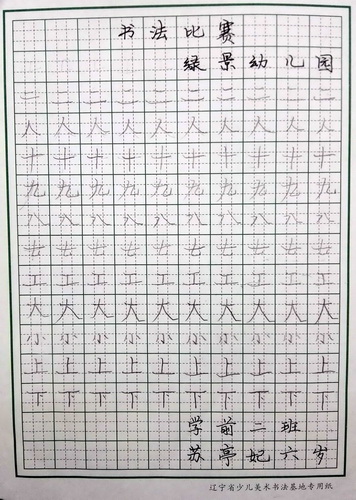 书法比赛
绿景幼儿园
二二二二二二二二二二
人人人人人人人人人人
十十十十十十十十十十
九九九九九九九九九九
八八八八八八八八八八
工工工工工工工工工工
大大大大大大大大大大
小小小小小小小小小小
上上上上上上上上上上
下下下下下下下下下下
学前二班
苏亭妃六岁
辽宁省少儿美术书法基地专用纸